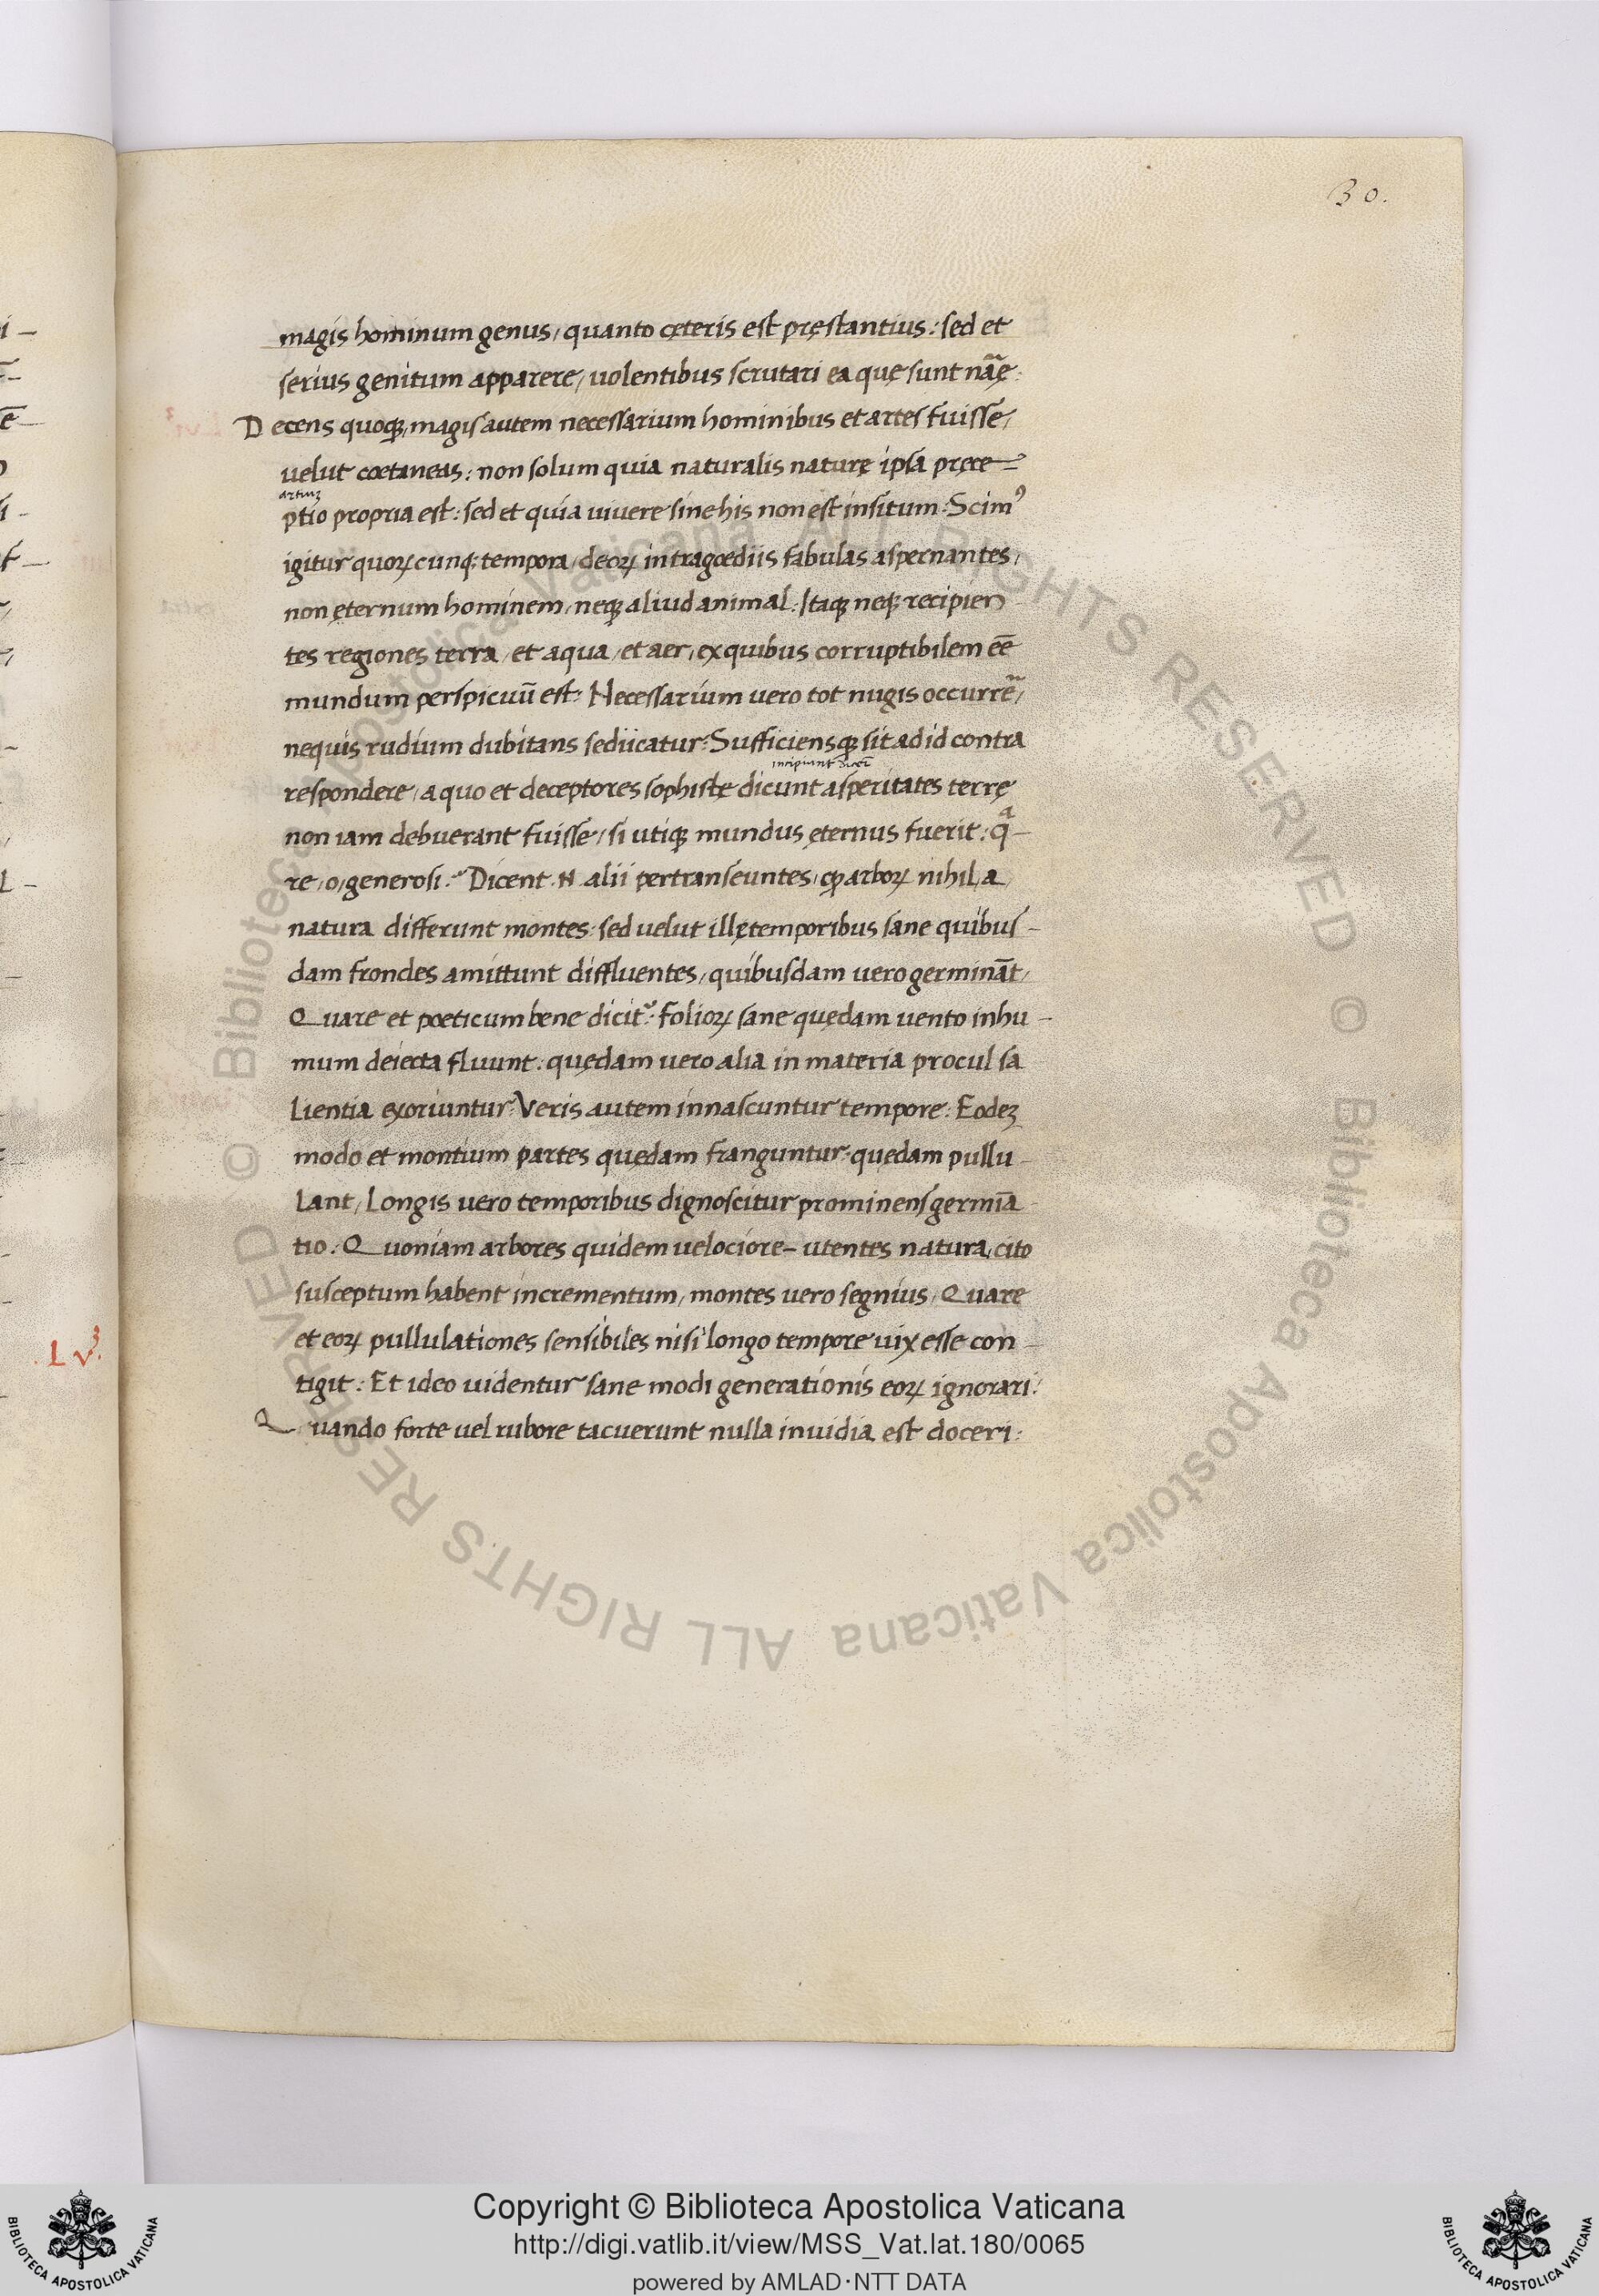 30.
magis hominum genus, quanto cęteris est pręstantius: sed et
serius genitum apparere, uolentibus scrutari ea quę sunt nãę:
Decens quoqꝫ, magis autem necessarium hominibus et artes fuisse,
uelut coetaneas: non solum quia naturalis naturę ipsa prece-
artiuꝫ
ptio propria est: sed et quia uiuere sine his non est insitum: Scimꝰ
igitur quoꝝcunqꝫ tempora, deoꝝ in tragoediis fabulas aspernantes,
non ęternum hominem, neqꝫ aliud animal: Itaqꝫ neqꝫ recipien
tes regiones terra, et aqua, et aer, ex quibus corruptibilem eē
mundum perspicuū est: Necessarium uero tot nugis occurrẽ,
nequis rudium dubitans sediicatur: Sufficiensqꝫ sit ad id contra
incipiunt dicēt
respondere, a quo et deceptores sophistę dicunt asperitates terrę
non iam debuerant fuisse, si utiqꝫ mundus ęternus fuerit: qᵃ-
re, o, generosi: Dicent .N. alii pertranseuntes, ꝙ arboꝝ nihil, a,
natura differunt montes: sed uelut illę temporibus sane quibus-
dam frondes amittunt diffluentes, quibusdam uero germināt,
Quare et poeticum bene dicit᷑: folioꝝ sane quędam uento in hu-
mum deiecta fluunt: quędam uero alia in materia procul sa
lientia exoriuntur: Veris autem innascuntur tempore: Eodeꝫ
modo et montium partes quędam franguntur: quędam pullu-
lant, Longis uero temporibus dignoscitur prominens germīa-
tio: Quoniam arbores quidem uelociore- utentes natura, cito
susceptum habent incrementum, montes uero segnius, Quare
et eoꝝ pullulationes sensibiles nisi longo tempore uix esse con-
tigit: Et ideo uidentur sane modi generationis eoꝝ ignorari:
Quando forte uel rubore tacuerunt nulla inuidia est doceri:
.Lv³.
© Biblioteca Apostolica Vaticana ALL RIGHTS RESERVED © Biblioteca Apostolica Vaticana ALL RIGHTS RESERVED
Copyright © Biblioteca Apostolica Vaticana
http://digi.vatlib.it/view/MSS_Vat.lat.180/0065
powered by AMLAD·NTT DATA
BIBLIOTECA APOSTOLICA VATICANA
BIBLIOTECA APOSTOLICA VATICANA